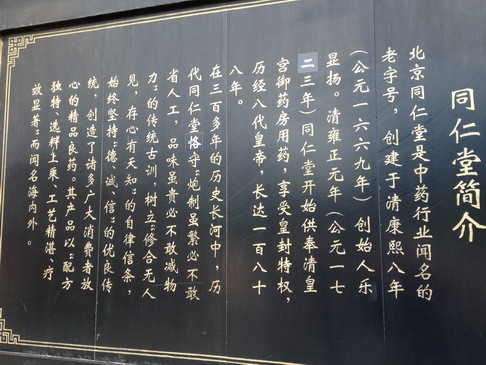 同仁堂简介
北京同仁堂是中药行业闻名的
老字号，创建于清康熙八年
（公元一六六九年）创始人乐
显扬。清雍正元年（公元一七
二三年）同仁堂开始供奉清皇
宫御药房用药，享受皇封特权，
历经八代皇帝，长达一百八十
八年。
在三百多年的历史长河中，历
代同仁堂恪守“炮制虽繁必不敢
省人工，品味虽贵必不敢减物
力”的传统古训，树立“修合无人
见，存心有天知”的自律信条，
始终坚持“德、诚、信”的优良传
统，创造了诸多广大消费者放
心的精品良药。其产品以“配方
独特、选料上乘、工艺精湛、疗
效显著”而闻名海内外。